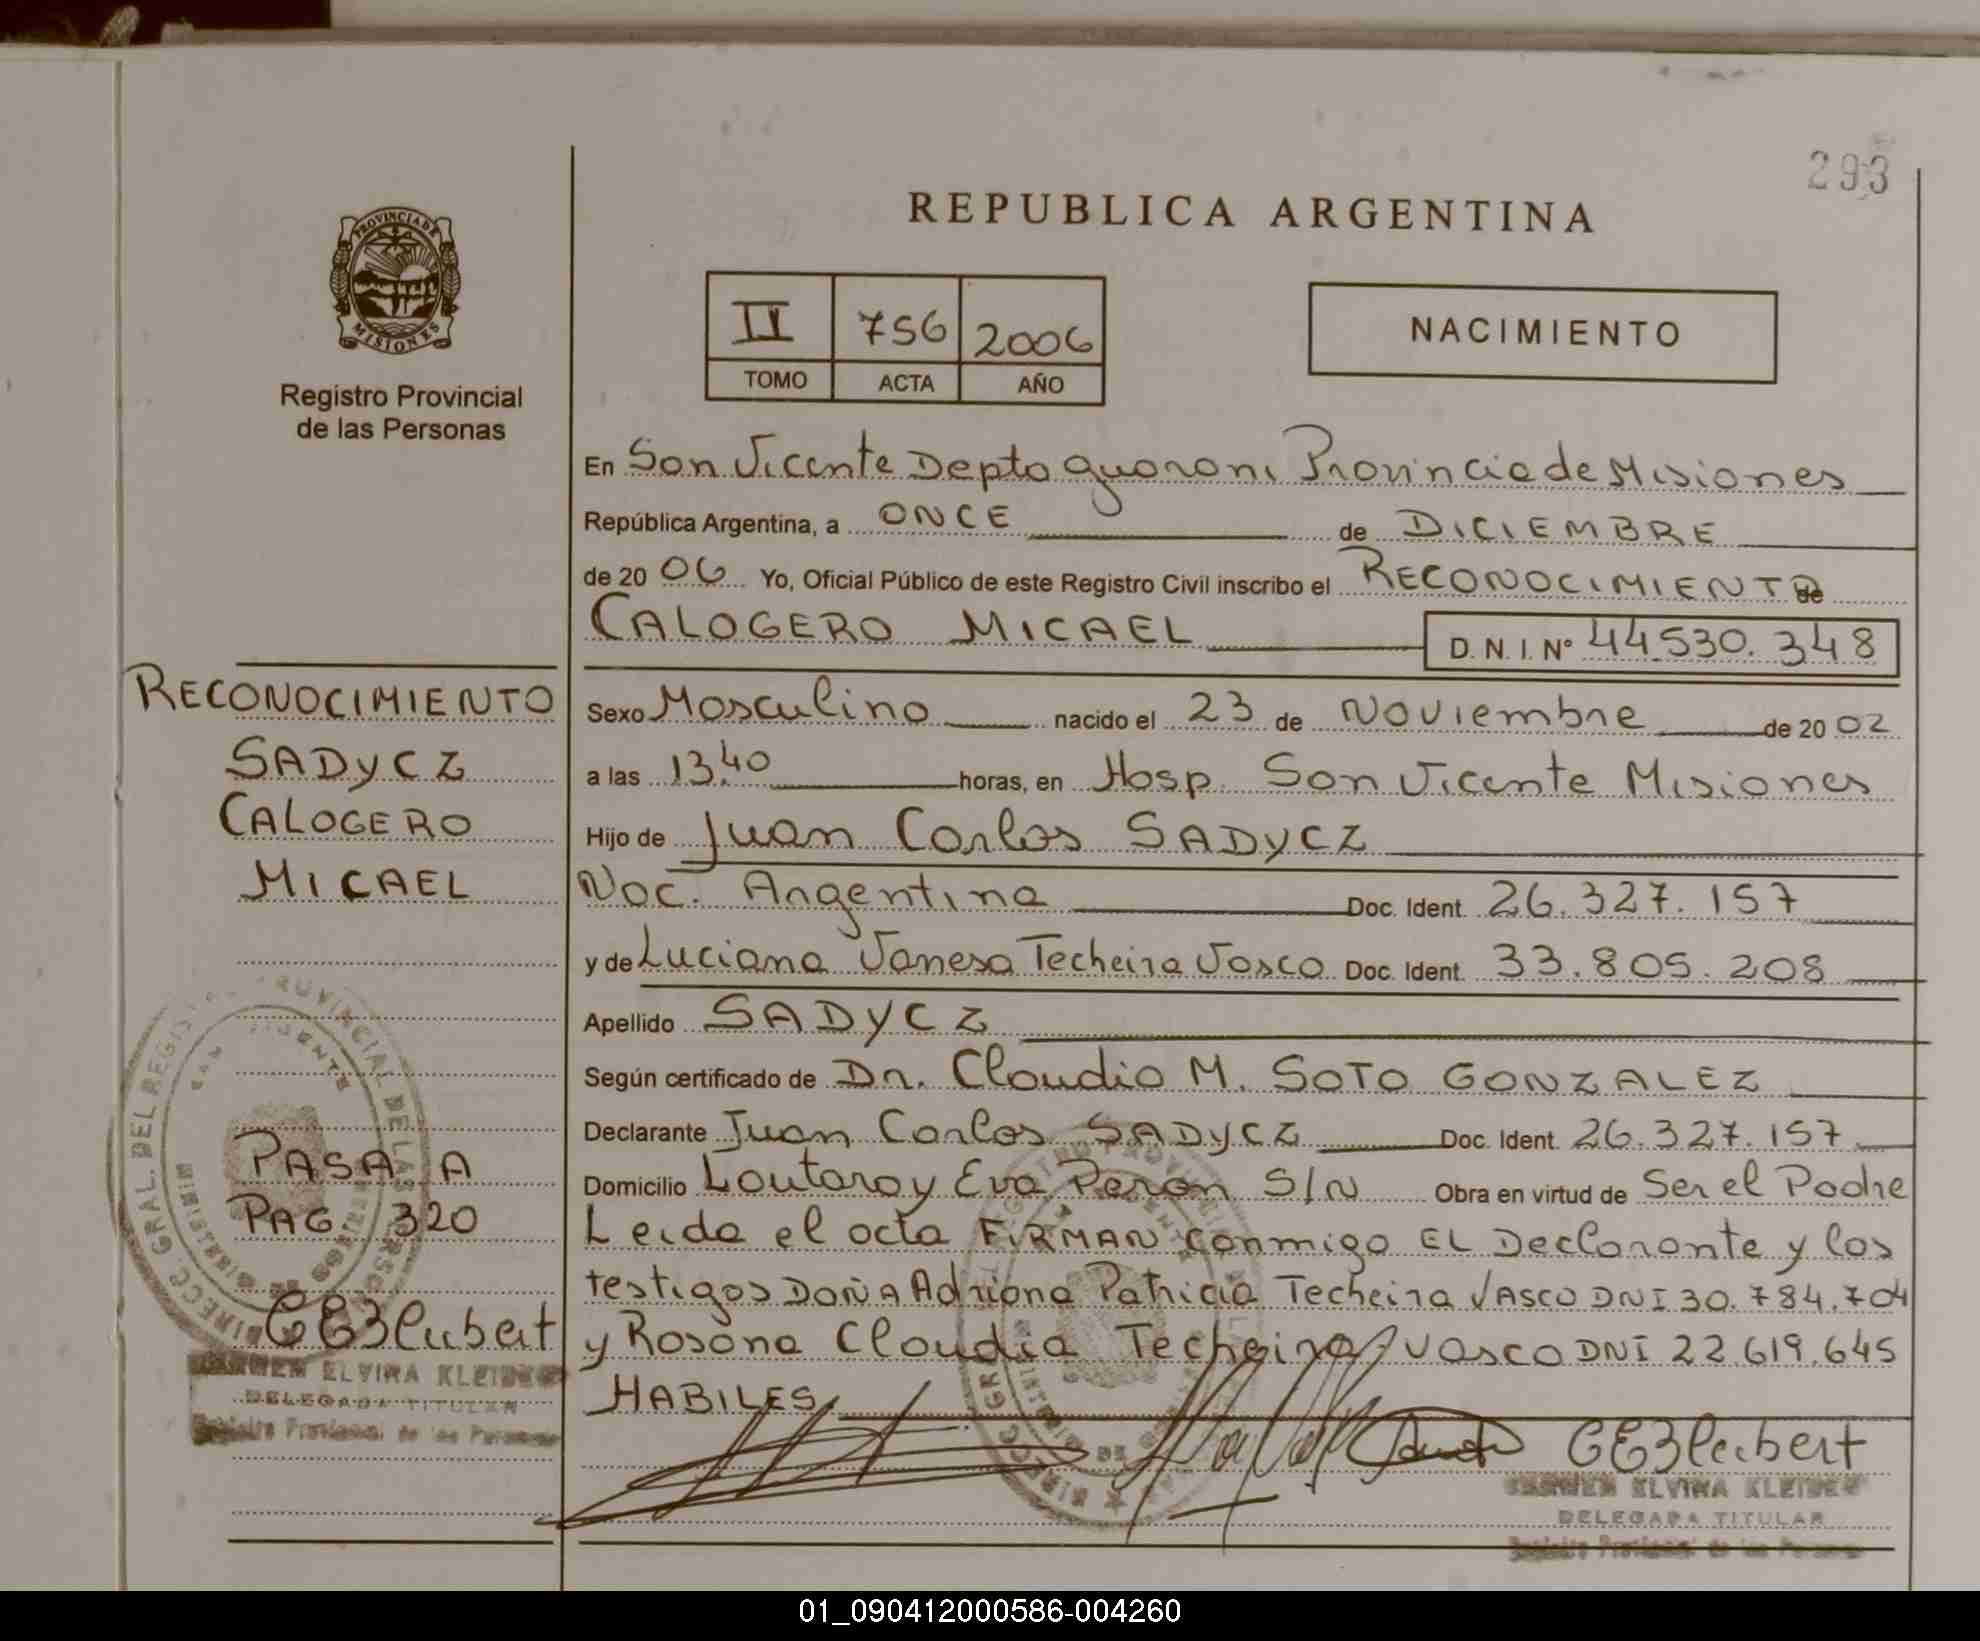 293
REPUBLICA ARGENTINA
PROVINCIA DE
MISIONES
Registro Provincial
de las Personas
II 756 2006
TOMO ACTA AÑO
NACIMIENTO
En San Vicente Depto guarani Provincia de Misiones
República Argentina, a ONCE de DICIEMBRE
de 2006 Yo, Oficial Público de este Registro Civil inscribo el RECONOCIMIENTO de
CALOGERO MICAEL D.N.I. Nº 44.530.348
RECONOCIMIENTO
SADYCZ
CALOGERO
MICAEL
Sexo Masculino nacido el 23 de Noviembre de 2002
a las 13,40 horas, en Hosp. San Vicente Misiones
Hijo de Juan Carlos SADYCZ
Nac. Argentina Doc. Ident. 26.327.157
y de Luciana Vanesa Techeira Vasco Doc. Ident. 33.805.208
Apellido SADYCZ
Según certificado de Dr. Claudio M. SOTO GONZALEZ
Declarante Juan Carlos SADYCZ Doc. Ident. 26.327.157
Domicilio Lautaro y Eva Peron S/N Obra en virtud de Ser el Padre
Leida el acta FIRMAN conmigo EL Declarante y los
testigos DOÑA Adriana Patricia Techeira VASCO DNI 30.784.704
y Rosana Claudia Techeira Vasco DNI 22.619.645
HABILES
PASA A
PAG 320
DIRECC. GRAL. DEL REGISTRO PROVINCIAL DE LAS PERSONAS
SAN VICENTE
CARMEN ELVIRA KLEIBER
DELEGADA TITULAR
Registro Provincial de las Personas
CARMEN ELVIRA KLEIBER
DELEGADA TITULAR
Registro Provincial de las Personas
01_090412000586-004260